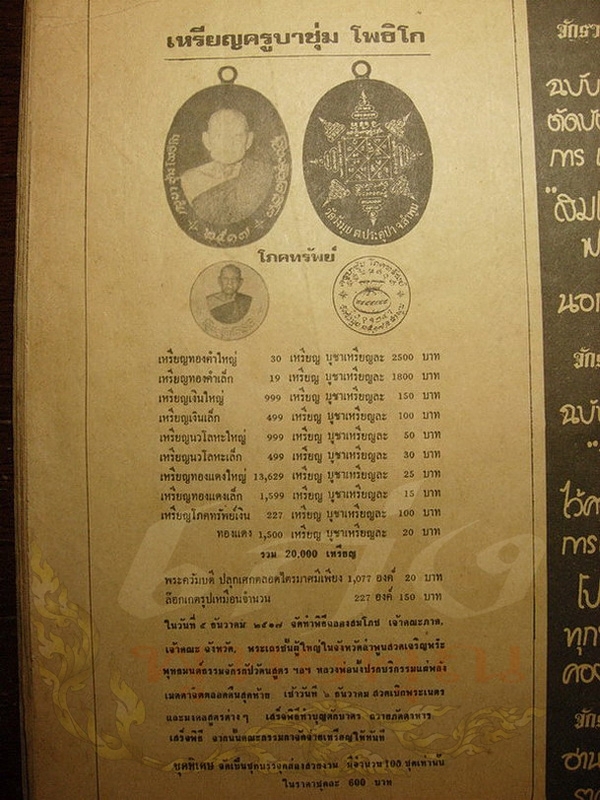 เหรียญครูบาชุ่ม โพธิโก
ครูบาชุ่ม โพธิโก
๒๕๑๗
วัดวังมุย ต.ประตูป่า จ.ลำพูน
โภคทรัพย์
เหรียญทองคำใหญ่ 30 เหรียญ บูชาเหรียญละ 2500 บาท
เหรียญทองคำเล็ก 19 เหรียญ บูชาเหรียญละ 1800 บาท
เหรียญเงินใหญ่ 999 เหรียญ บูชาเหรียญละ 150 บาท
เหรียญเงินเล็ก 499 เหรียญ บูชาเหรียญละ 100 บาท
เหรียญนวโลหะใหญ่ 999 เหรียญ บูชาเหรียญละ 50 บาท
เหรียญนวโลหะเล็ก 499 เหรียญ บูชาเหรียญละ 30 บาท
เหรียญทองแดงใหญ่ 13,629 เหรียญ บูชาเหรียญละ 25 บาท
เหรียญทองแดงเล็ก 1,599 เหรียญ บูชาเหรียญละ 15 บาท
เหรียญโภคทรัพย์เงิน 227 เหรียญ บูชาเหรียญละ 100 บาท
ทองแดง 1,500 เหรียญ บูชาเหรียญละ 20 บาท
รวม 20,000 เหรียญ
พระควัมบดี ปลุกเศกตลอดไตรมาศมีเพียง 1,077 องค์ 20 บาท
ล๊อกเกตรูปเหมือนจำนวน 227 องค์ 150 บาท
ในวันที่ ๕ ธันวาคม ๒๕๑๗ จัดทำพิธีฉลองสมโภช เจ้าคณะภาค,
เจ้าคณะ จังหวัด, พระเถรชั้นผู้ใหญ่ในจังหวัดลำพูนสวดเจริญพระ
พุทธมนต์ธรรมจักรกัปวัตนสูตร ฯลฯ หลวงพ่อนั่งปรกบริกรรมแผ่พลัง
เมตตาจิตตลอดคืนสุดท้าย เช้าวันที่ ๖ ธันวาคม สวดเบิกพระเนตร
และมงคลสูตรต่างๆ เสร็จพิธีทำบุญตักบาตร ถวายภัตตาหาร
เสร็จพิธี จากนั้นคณะกรรมการจัดจ่ายเหรียญให้ทันที
ชุดพิเศษ จัดเป็นชุดบรรจุกล่องสวยงาม มีจำนวน 100 ชุดเท่านั้น
ในราคาชุดละ 600 บาท
ฉบับ
ตัดบั
การ
นอก
ฉบับ
การ
ทุก
อ่าน